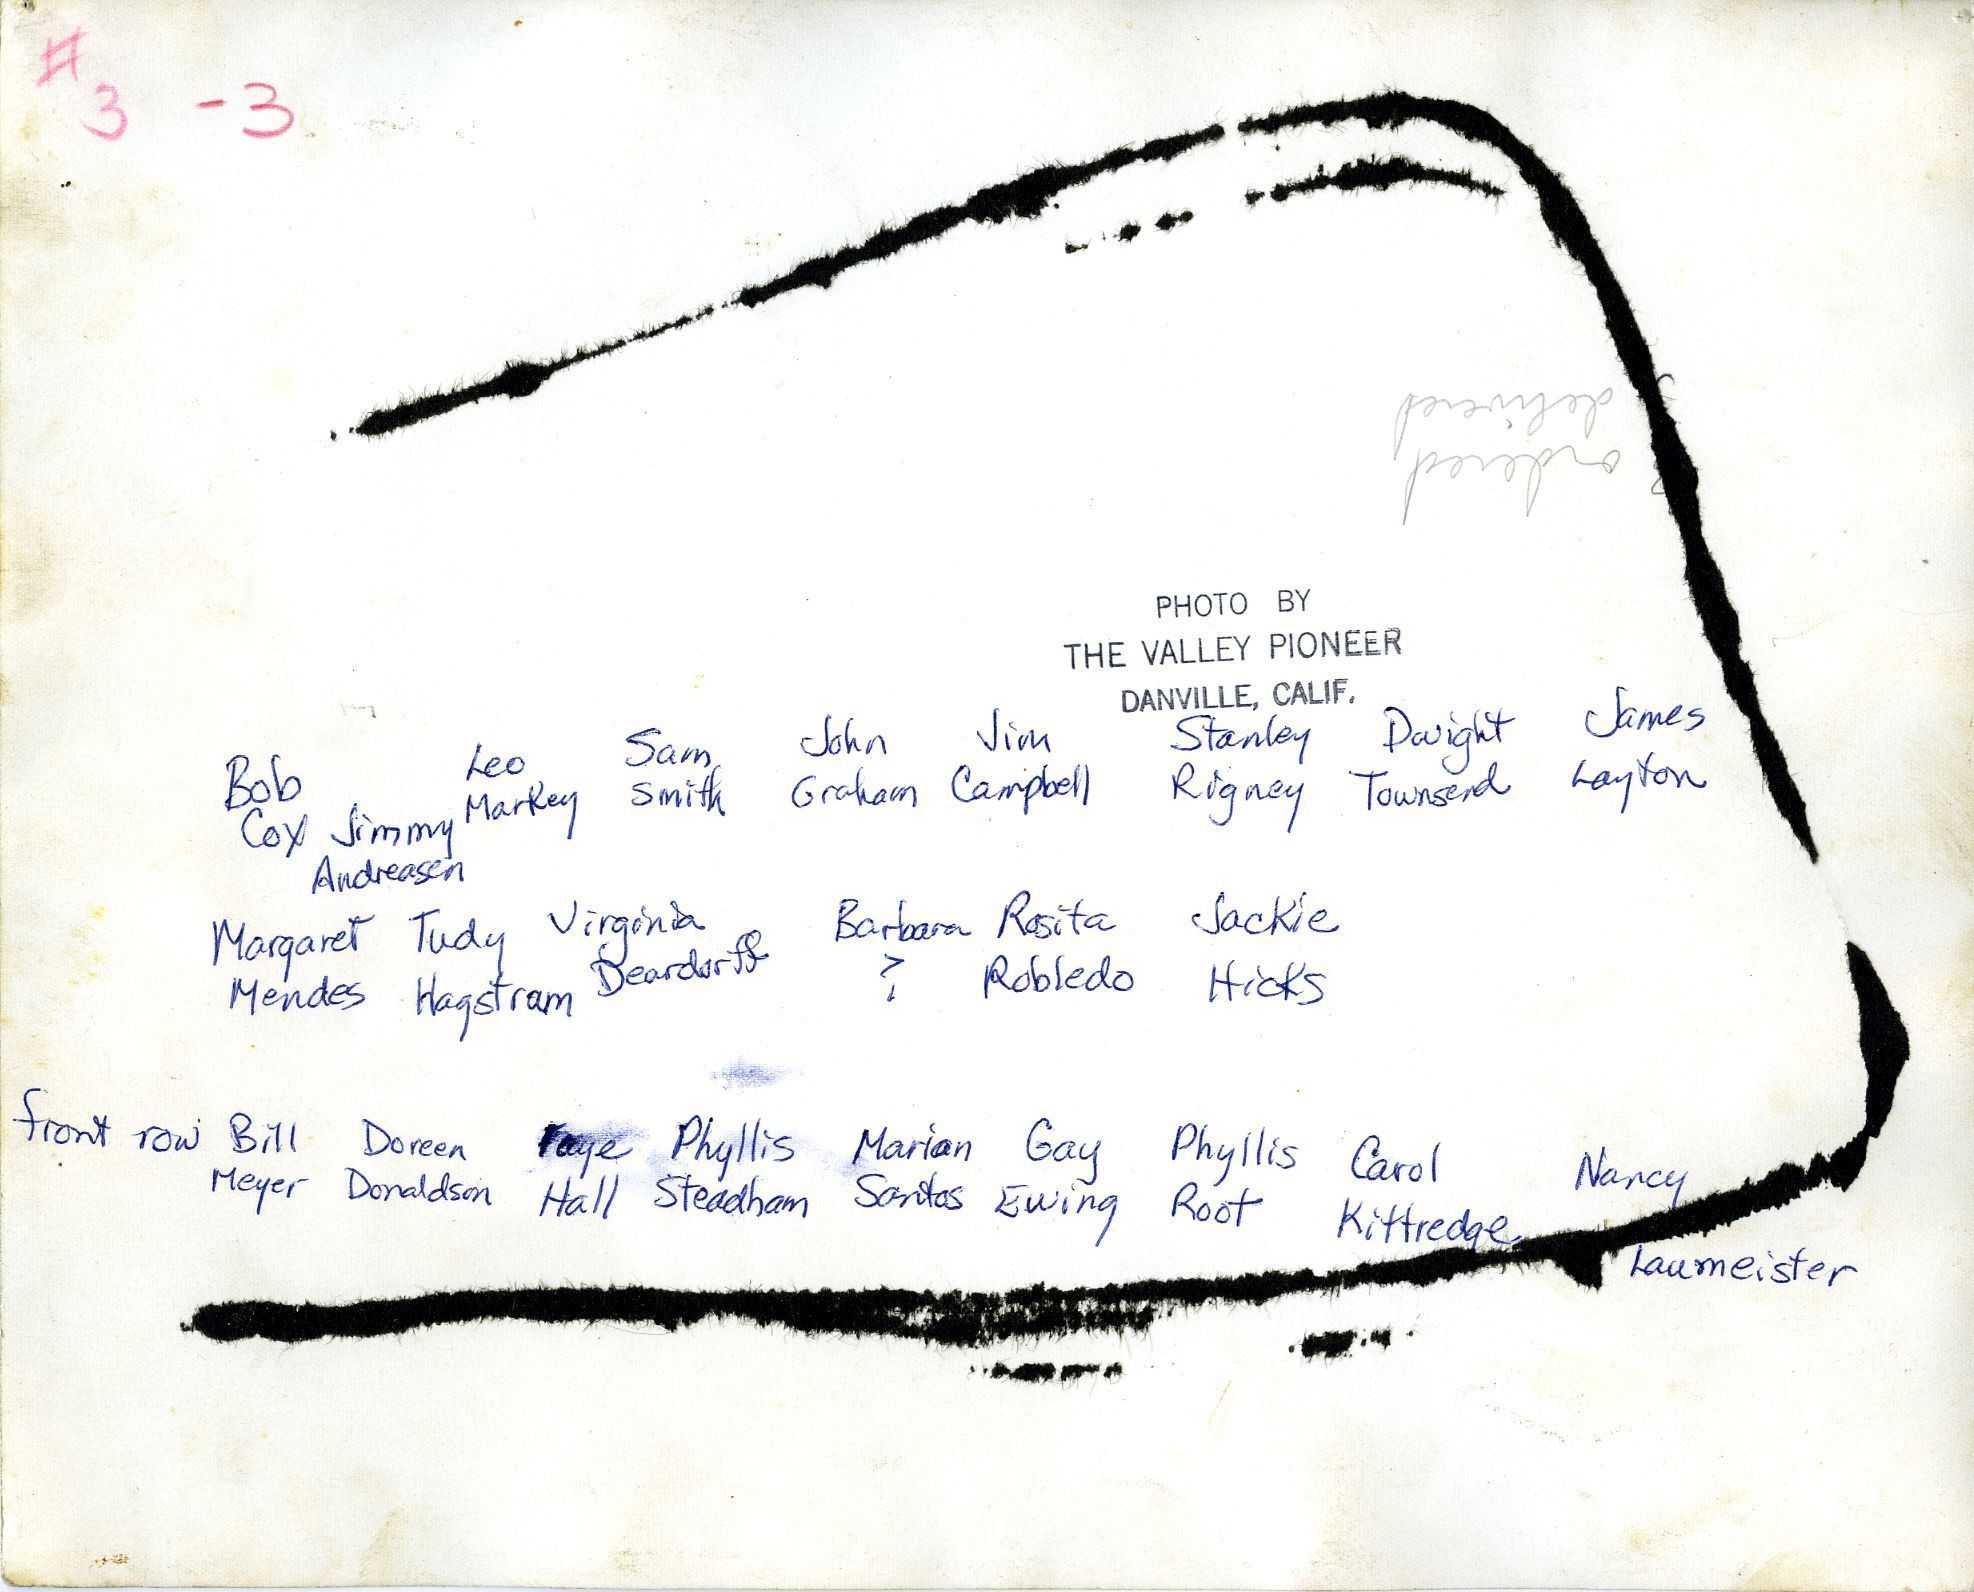 #
3 -3
delivered
ordered
PHOTO BY
THE VALLEY PIONEER
DANVILLE, CALIF.
Bob Leo Sam John Jim Stanley Dwight James
Cox Jimmy Markey Smith Graham Campbell Rigney Townsend Layton
Andreasen
Margaret Tudy Virginia Barbara Rosita Jackie
Mendes Hagstram Deardorff ? Robledo Hicks
front row Bill Doreen Faye Phyllis Marian Gay Phyllis Carol Nancy
Meyer Donaldson Hall Steadham Santos Ewing Root Kittredge
Laumeister